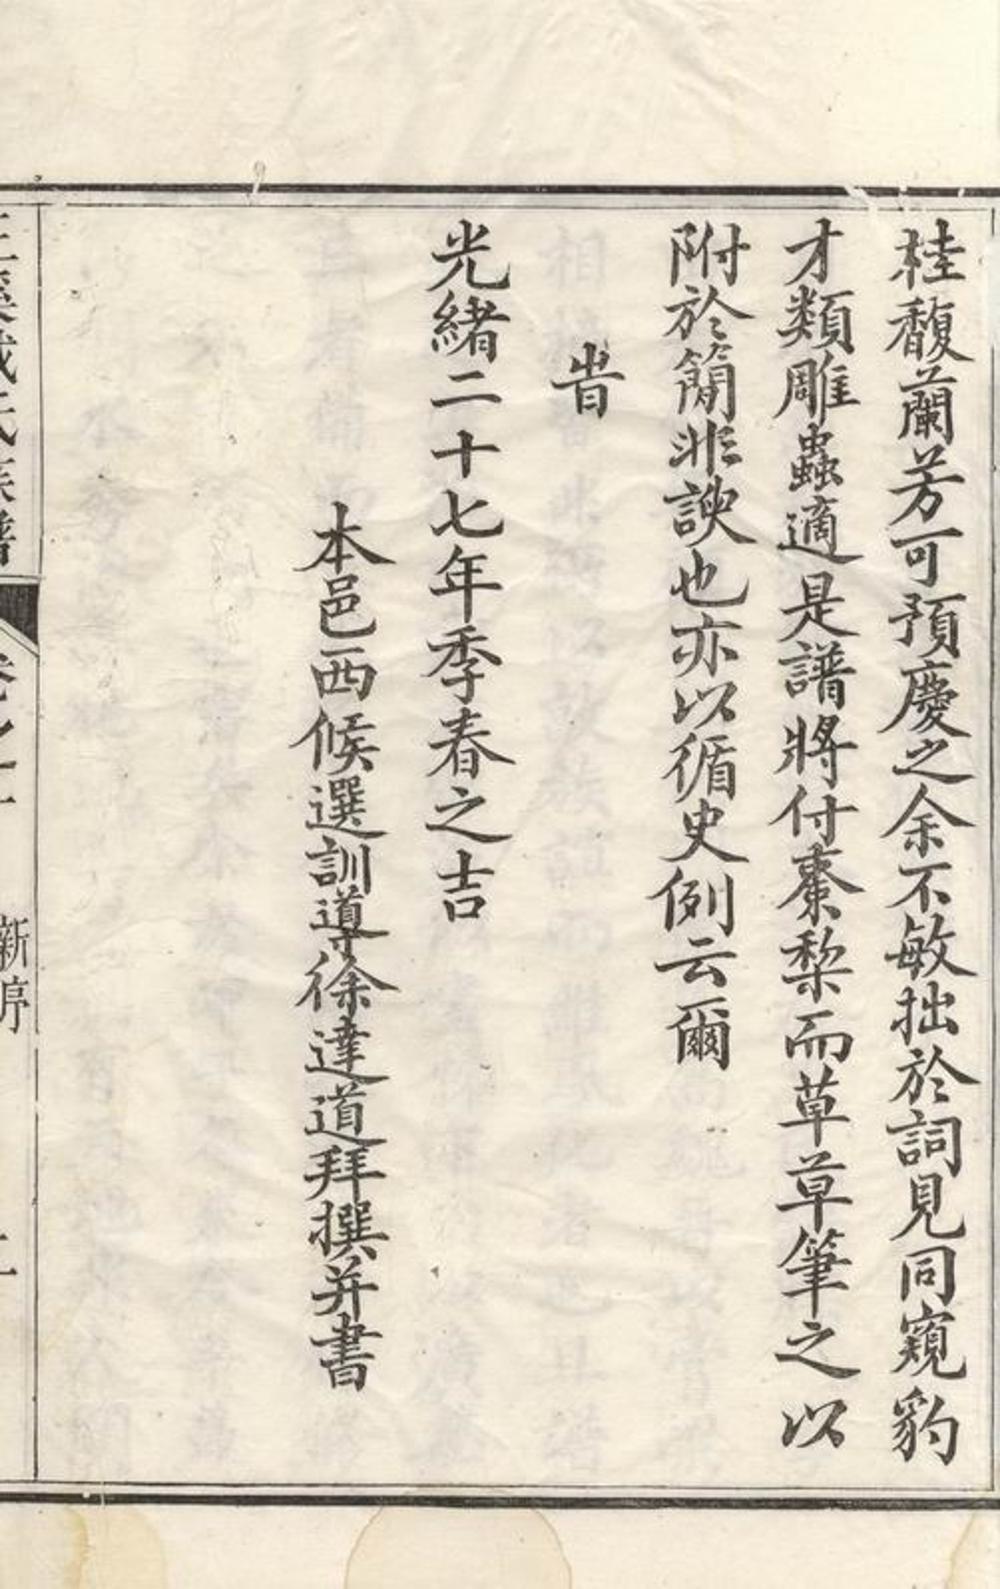 桂馥蘭芳可預慶之余不敏拙於詞見同窺豹
才類雕蟲適是譜將付棗棃而草草筆之以
附於簡非諛也亦以循史例云爾
旹
光緒二十七年季春之吉
本邑西候選訓導徐達道拜撰并書
氏族譜
卷之
新序